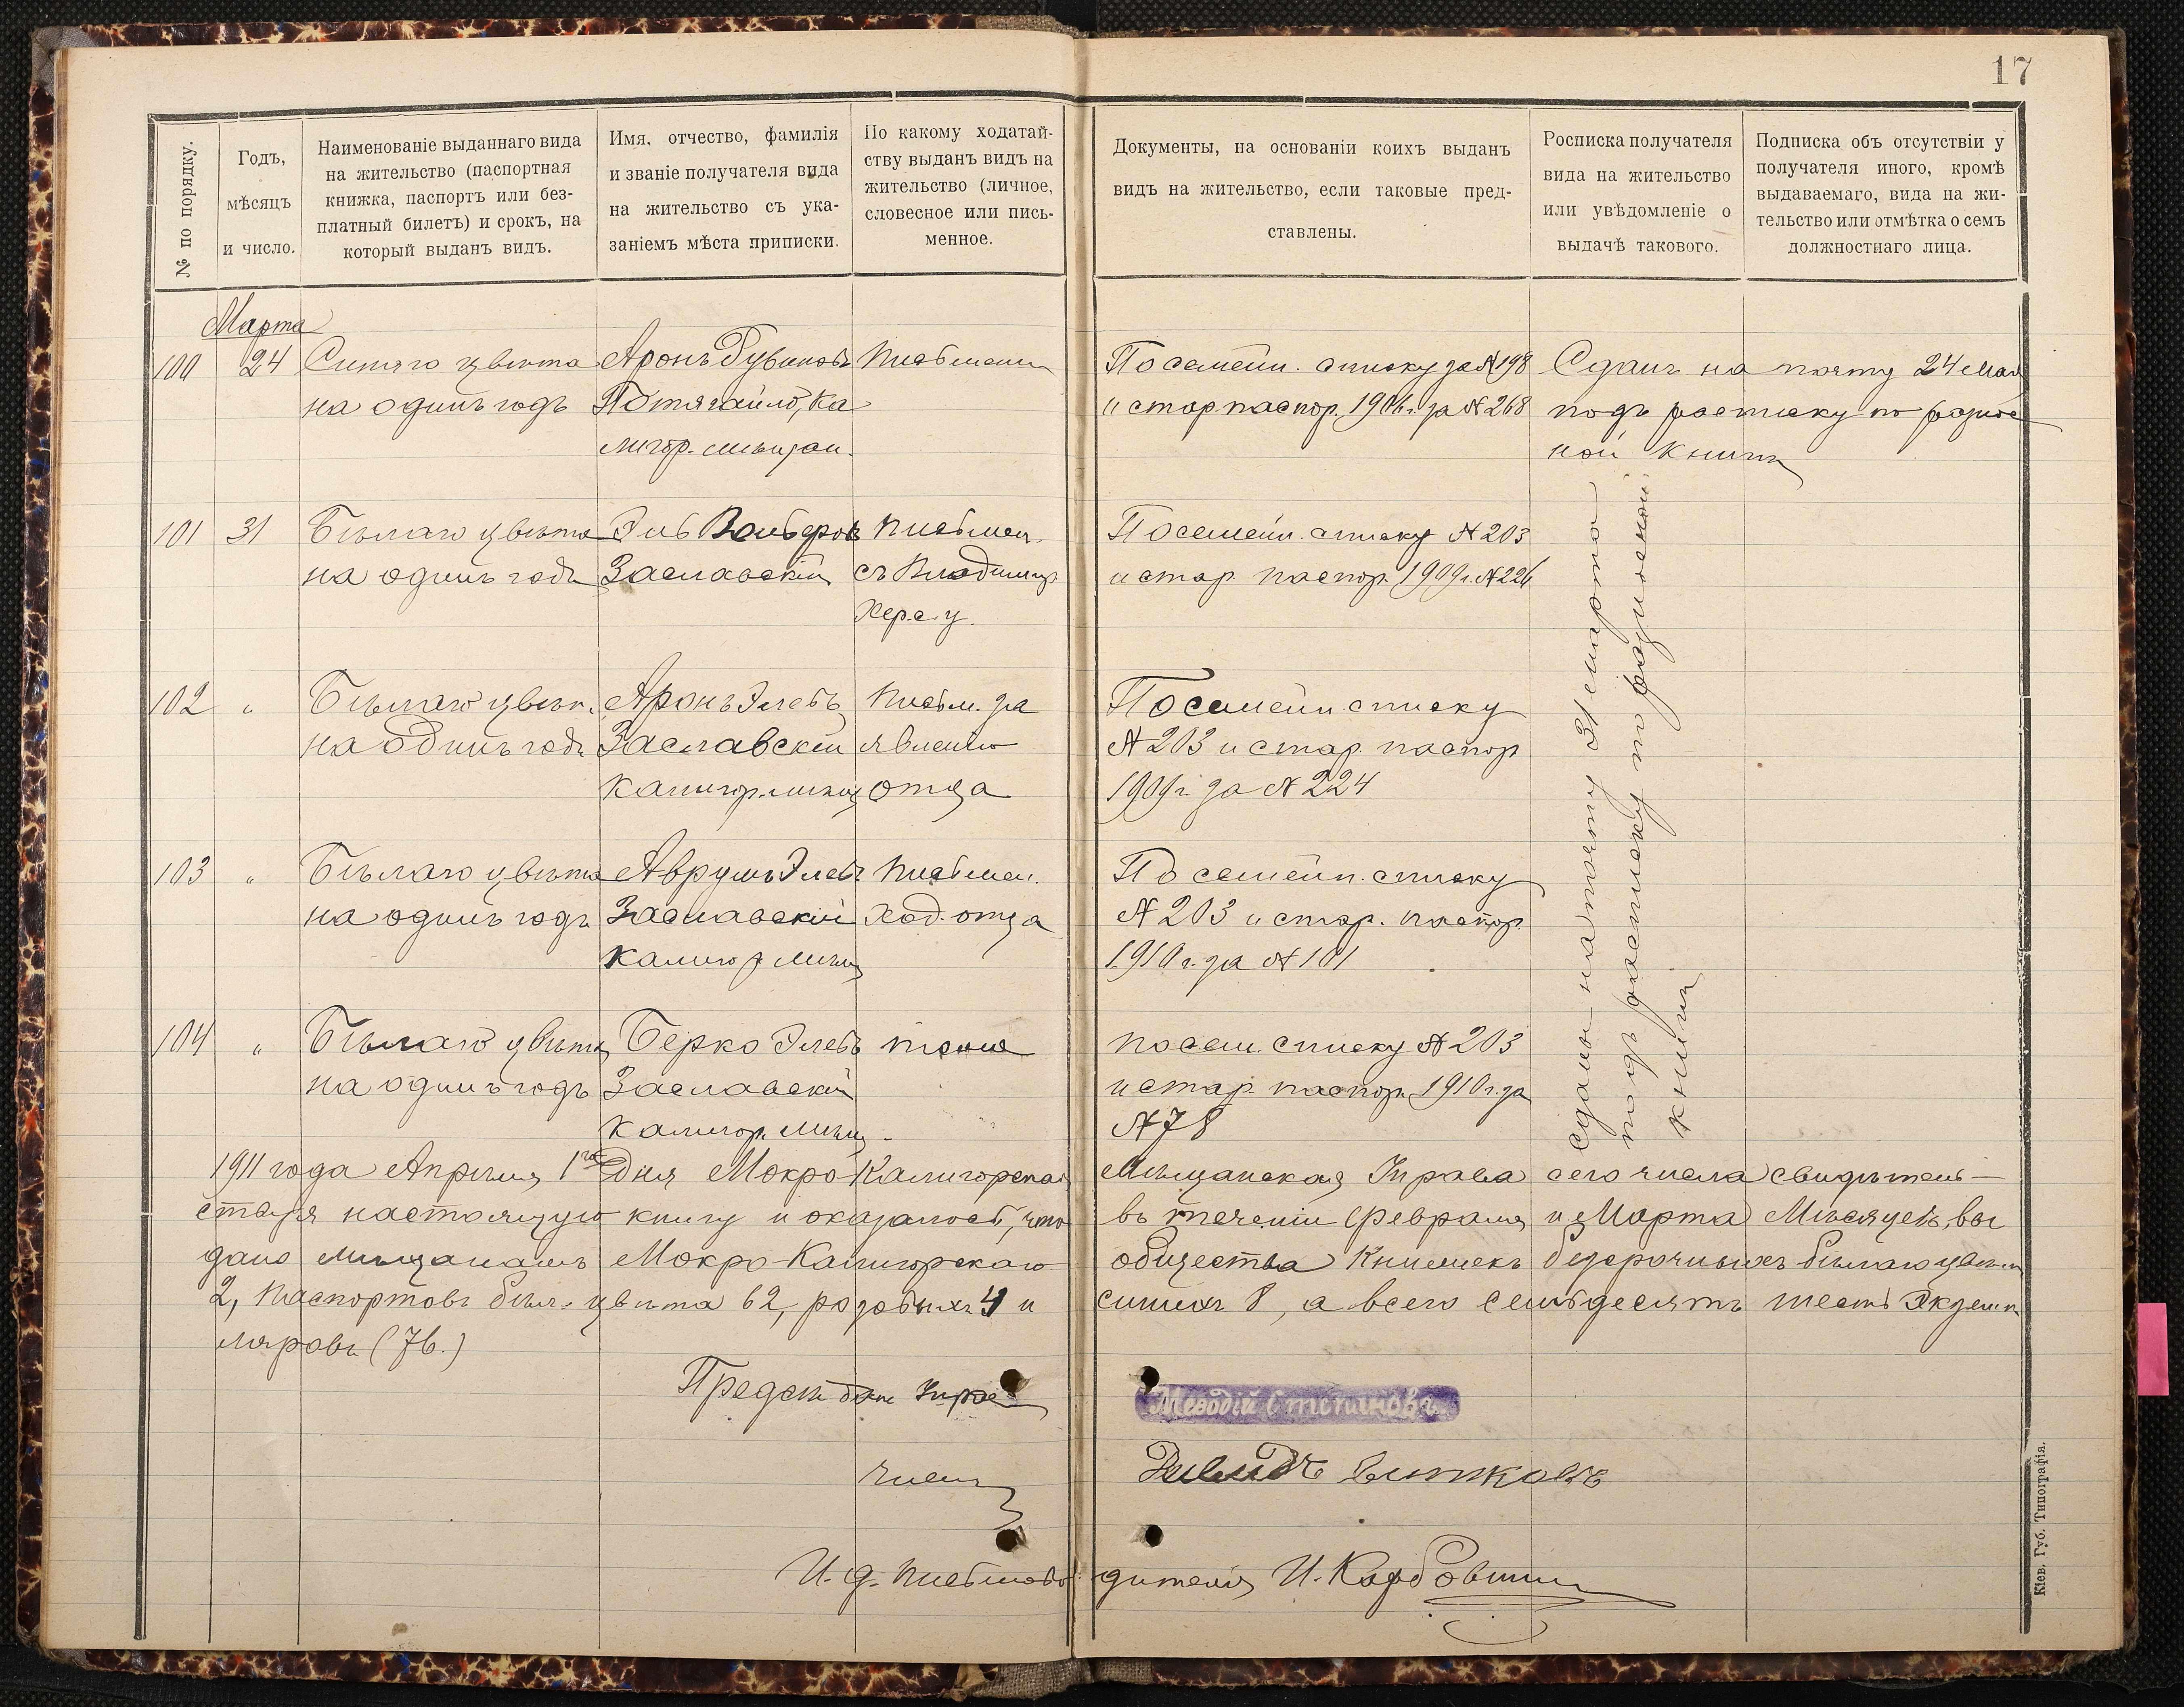 17
№ по порядку.
Годъ,
мѣсяцъ
и число.
Наименованіе выданнаго вида
на жительство (паспортная
книжка, паспортъ или без-
платный билетъ) и срокъ, на
который выданъ видъ.
Имя, отчество, фамилія
и званіе получателя вида
на жительство съ ука-
заніемъ мѣста приписки.
По какому ходатай-
ству выданъ видъ на
жительство (личное,
словесное или пись-
менное.
Документы, на основаніи коихъ выданъ
видъ на жительство, если таковые пред-
ставлены.
Росписка получателя
вида на жительство
или увѣдомленіе о
выдачѣ такового.
Подписка объ отсутствіи у
получателя иного, кромѣ
выдаваемаго, вида на жи-
тельство или отмѣтка о семъ
должностнаго лица.
Марта
100 24 Синяго цвѣта
на одинъ годъ
Аронъ Рувиновъ
Потягайло, Ка
лигор. мѣщан.
Письменн
Посемейн. списку за №198
и стар. паспор. 1906 г. за №268
Сданъ на почту 24 Мая
подъ росписку по разнос
ной книгѣ
101 31 Бѣлаго цвѣта
на одинъ годъ
Эль
Заславскій
Письмен.
съ Владимир
Хер. г.
Посемейн. списку №203
и стар. паспор. 1909 г. №226
102 " Бѣлаго цвѣт.
на одинъ годъ
Аронъ Элевъ
Заславскій
Калигор. мѣщ
Письм. за
явленію
отца
Посемейн. списку
№203 и стар. паспор
1909 г. за №224
103 " Бѣлаго цвѣта
на одинъ годъ
Аврумъ Элевъ
Заславскій
Калигор мѣщ
Письмен.
Ход. отца
Посемейн. списку
№203 и стар. паспор.
1910 г. за №101
104 " Бѣлаго цвѣта
на одинъ годъ
Берко Элевъ
Заславскій
Калигор. мѣщ
тоже
посем. списку №203
и стар. паспор. 1910 г. за
№78
Сданы на почту 31 марта
подъ росписку по разносной
книгѣ
1911 года Апрѣля 1го дня Мокро-Калигорская Мѣщанская Управа сего числа свидѣтель-
ствуя настоящую книгу и оказалось, что въ теченіи Февраля и Марта Мѣсяцевъ, вы
дано мѣщанамъ Мокро-Калигорскаго общества Книжекъ безсрочныхъ бѣлаго цвѣта
2, Паспортовъ бѣл. цвѣта 62, розовыхъ 4 и синихъ 8, а всего семьдесятъ шесть Экземп
ляровъ (76.)
Предсѣдатель Управы
Меѳодій Степановъ
Членъ
Давидъ
И. д. письмоводителя И.
Кіев. Губ. Типографія.